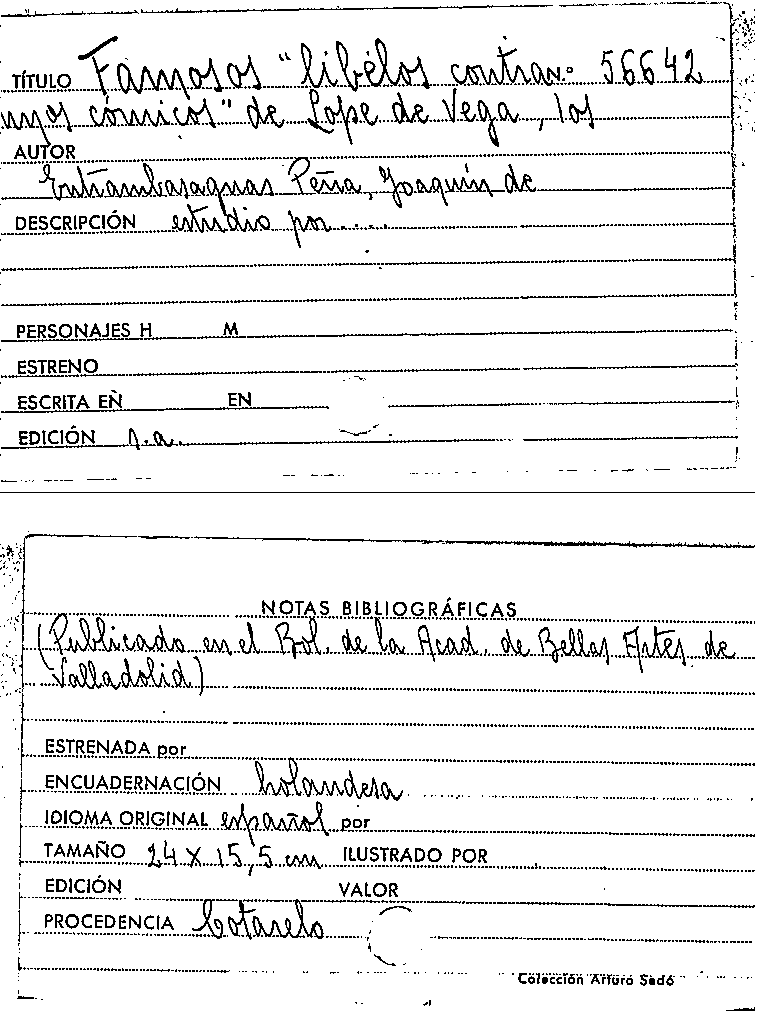 TÍTULO Famosos "libélos contra 56642
cómicos" de Lope de Vega, los
AUTOR
Entrambasaguas Peña, Joaquín de
DESCRIPCIÓN estudio por.....
PERSONAJES H M
ESTRENO
ESCRITA EN EN
EDICIÓN s.a.
NOTAS BIBLIOGRÁFICAS
(Publicado en el Bol. de la Acad. de Bellas Artes de
Valladolid)
ESTRENADA por
ENCUADERNACIÓN holandesa
IDIOMA ORIGINAL español por
TAMAÑO 24 X 15,5 cm ILUSTRADO POR
EDICIÓN VALOR
PROCEDENCIA Cotarelo
Colección Arturo Sedó